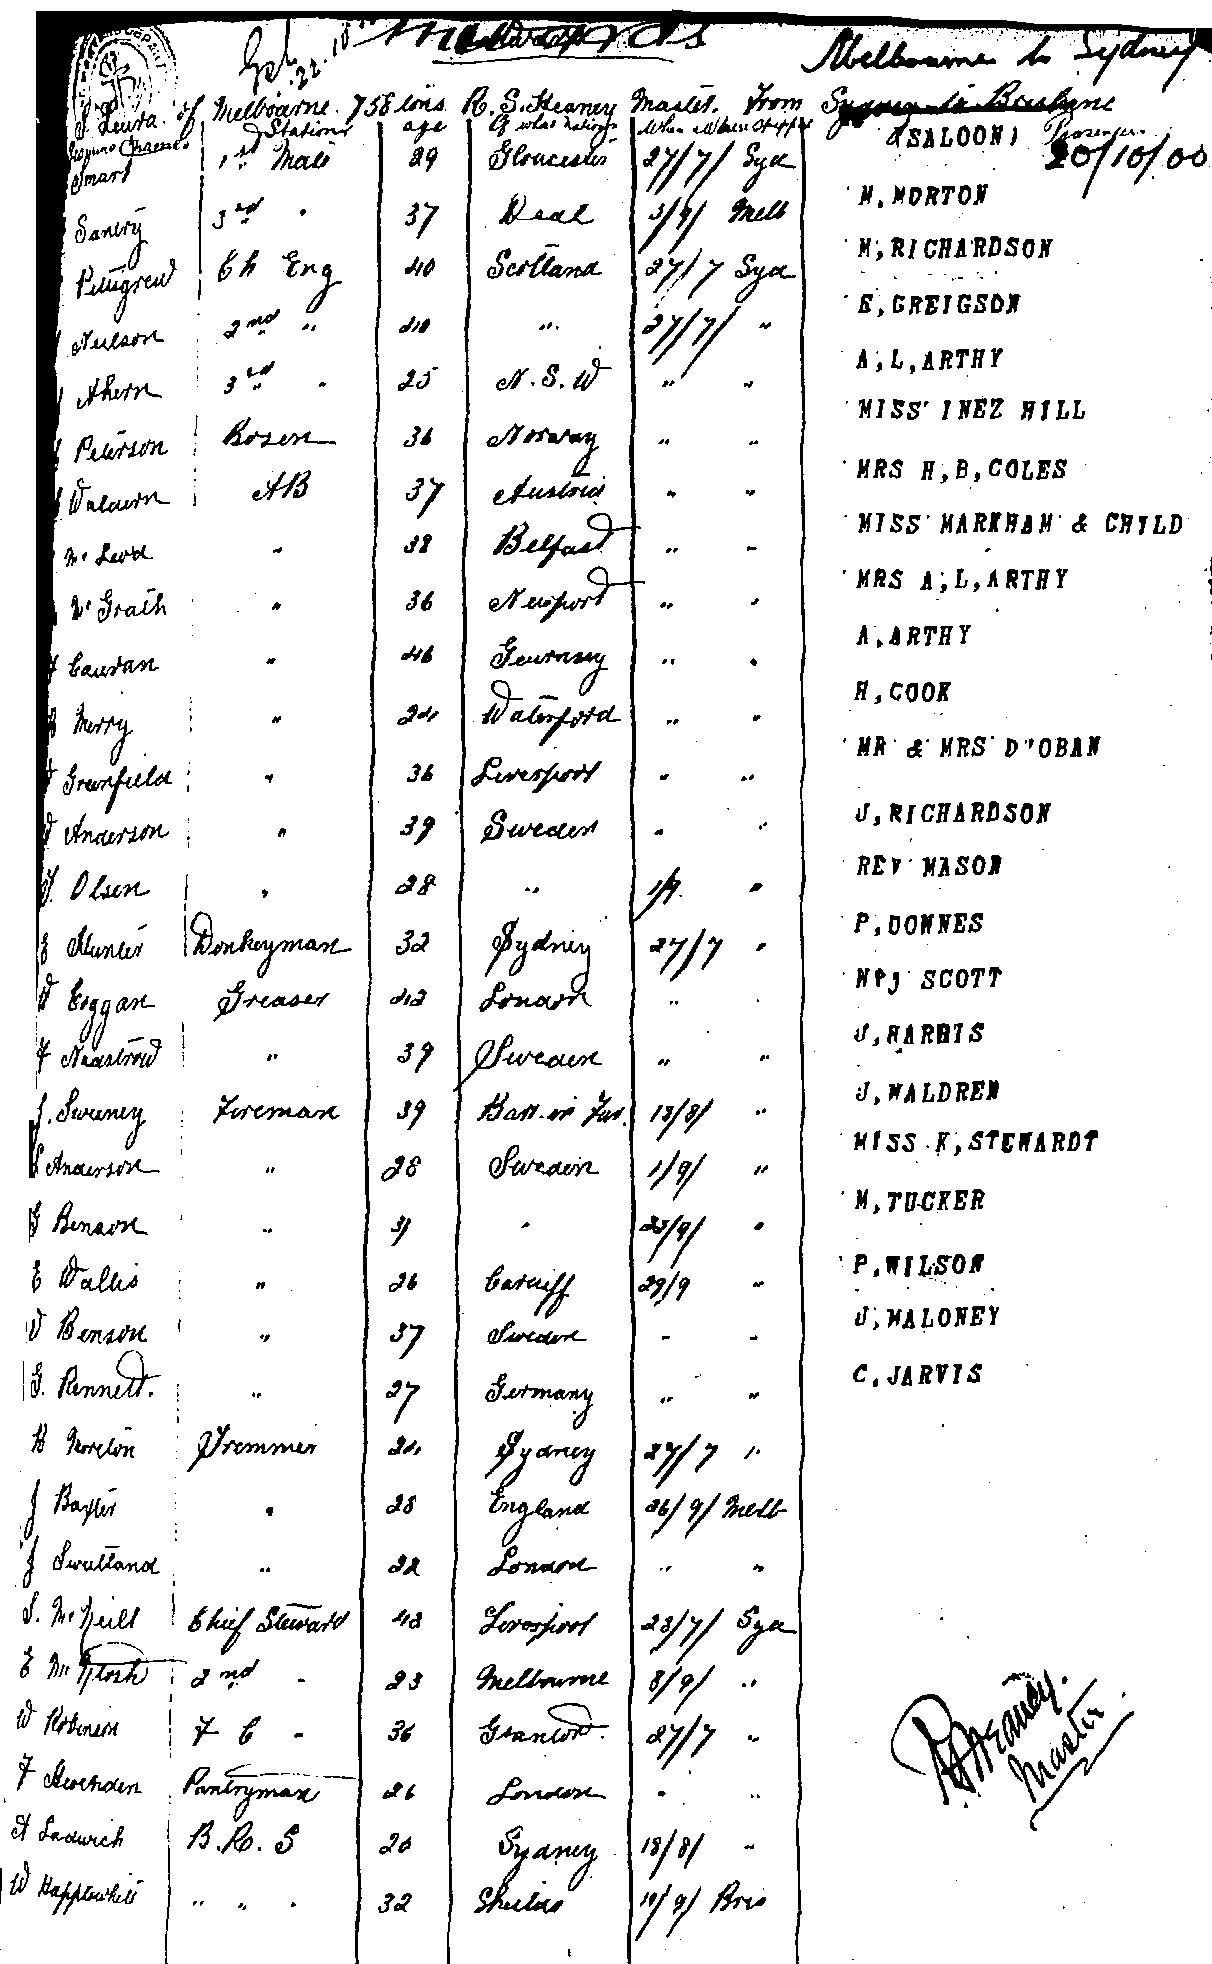 Inwards
Melbourne to Sydney
S. Leura of Melbourne 758 tons R. S. Heaney Master. From Sydney to Brisbane
Station age Of what nation When & Where Shipped (SALOON) Passengers
20/10/00
Smart 1st Mate 29 Gloucester 27/7/ Syd
M, MORTON
Santry 3rd " 37 Deal 3/9/ Melb
M, RICHARDSON
Pettigrew Ch Eng 40 Scotland 27/7 Syd
E, GREIGSON
Neilson 2nd " 40 " 27/7/ "
A, L, ARTHY
Ahern 3rd " 25 N. S. W " "
MISS INEZ HILL
Peterson Bosen 36 Norway " "
MRS H, B, COLES
Waldern AB 37 Austria " "
MISS MARKHAM & CHILD
McLeod " 38 Belfast " "
MRS A, L, ARTHY
McGrath " 36 Newport " "
A, ARTHY
Cauvan " 46 Guernsey " "
H, COOK
Merry " 24 Waterford " "
MR & MRS D'OBAN
Greenfield " 36 Liverpool " "
J, RICHARDSON
Anderson " 39 Sweden " "
REV MASON
Olsen " 28 " 1/9 "
P, DOWNES
E Hunter Donkeyman 32 Sydney 27/7 "
W P J SCOTT
Coggan Greaser 42 London " "
J, HARRIS
F Nadstrom " 39 Sweden " "
J, WALDREN
J. Sweeney Fireman 39 Barr-in-Fur. 18/8/ "
MISS K, STEWARDT
Anderson " 28 Sweden 1/9/ "
M, TUCKER
G Benson " 31 " 23/9/ "
P, WILSON
E Wallis " 26 Cardiff 29/9 "
J, MALONEY
Benson " 37 Sweden " "
C, JARVIS
G. Rennett. " 27 Germany " "
H Moreton Tremmer 24 Sydney 27/7 "
J Baxter " 28 England 26/9/ Melb
J Swetland " 22 London " "
S. McNeill Chief Steward 48 Liverpool 28/7/ Syd
E McIntosh 2nd " 23 Melbourne 8/9/ "
W Robinson F C " 36 27/7 "
F Hoenden Pantryman 26 London " "
A Ladwich B. R. S 20 Sydney 18/8/ "
W Happlewhite " " " 32 Shields 10/9/ Bris
R S Heaney.
Master